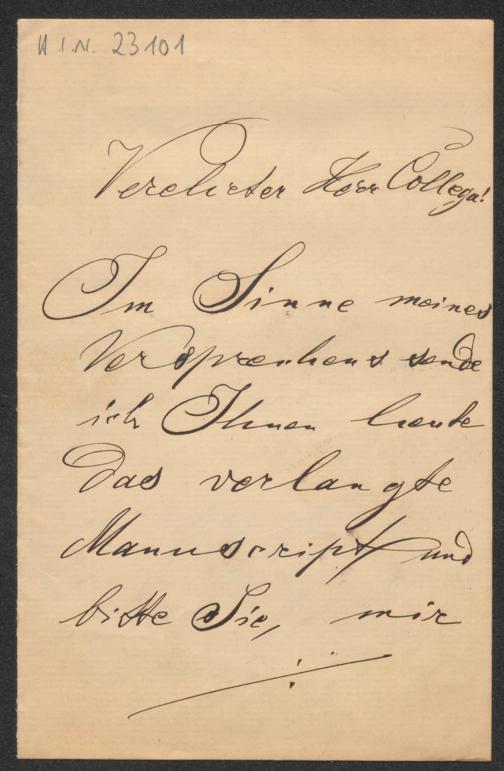 H.I.N. 23101
Verehrter Herr Collega!
Im Sinne meines
Versprechens sende
ich Ihnen heute
das verlangte
Manuscript und
bitte Sie, mir